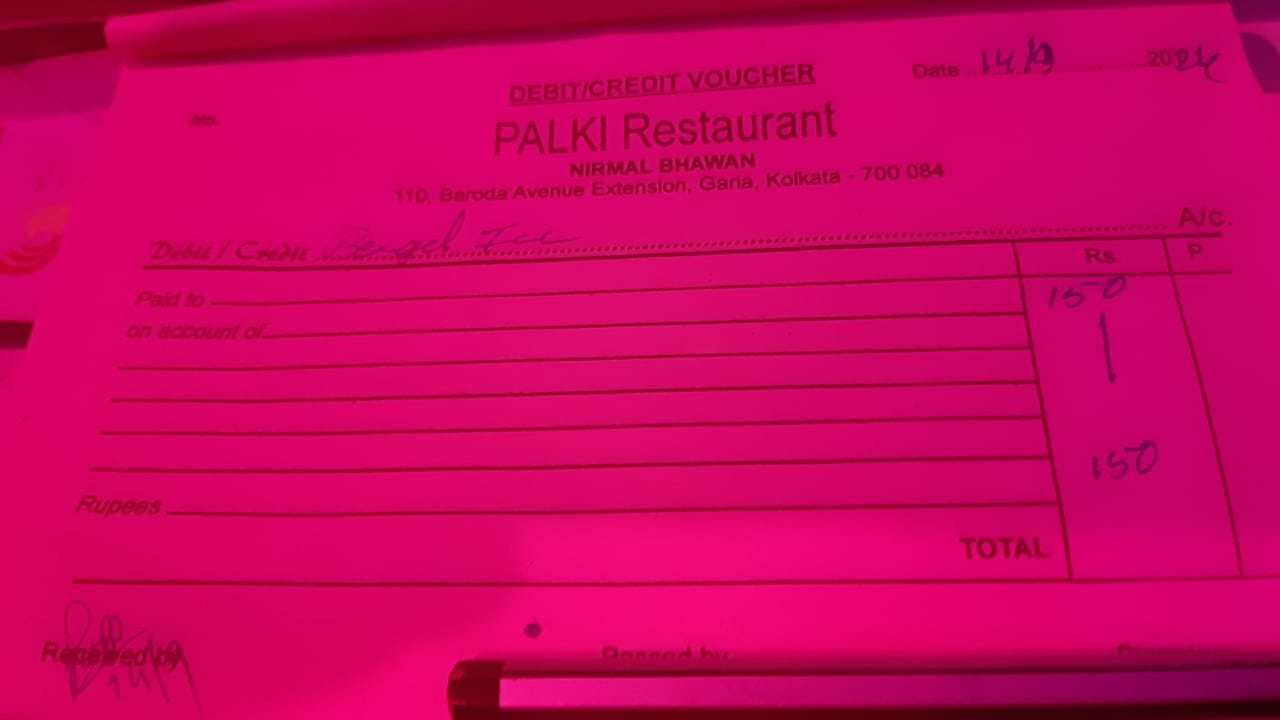 DEBIT/CREDIT VOUCHER
Date 14/9 2024
No.
PALKI Restaurant
NIRMAL BHAWAN
110, Baroda Avenue Extension, Garia, Kolkata - 700 084
Debit / Credit Bengal A/c.
Rs. P.
Paid to 150
on account of
150
Rupees
TOTAL
Received by
14/9
Passed by